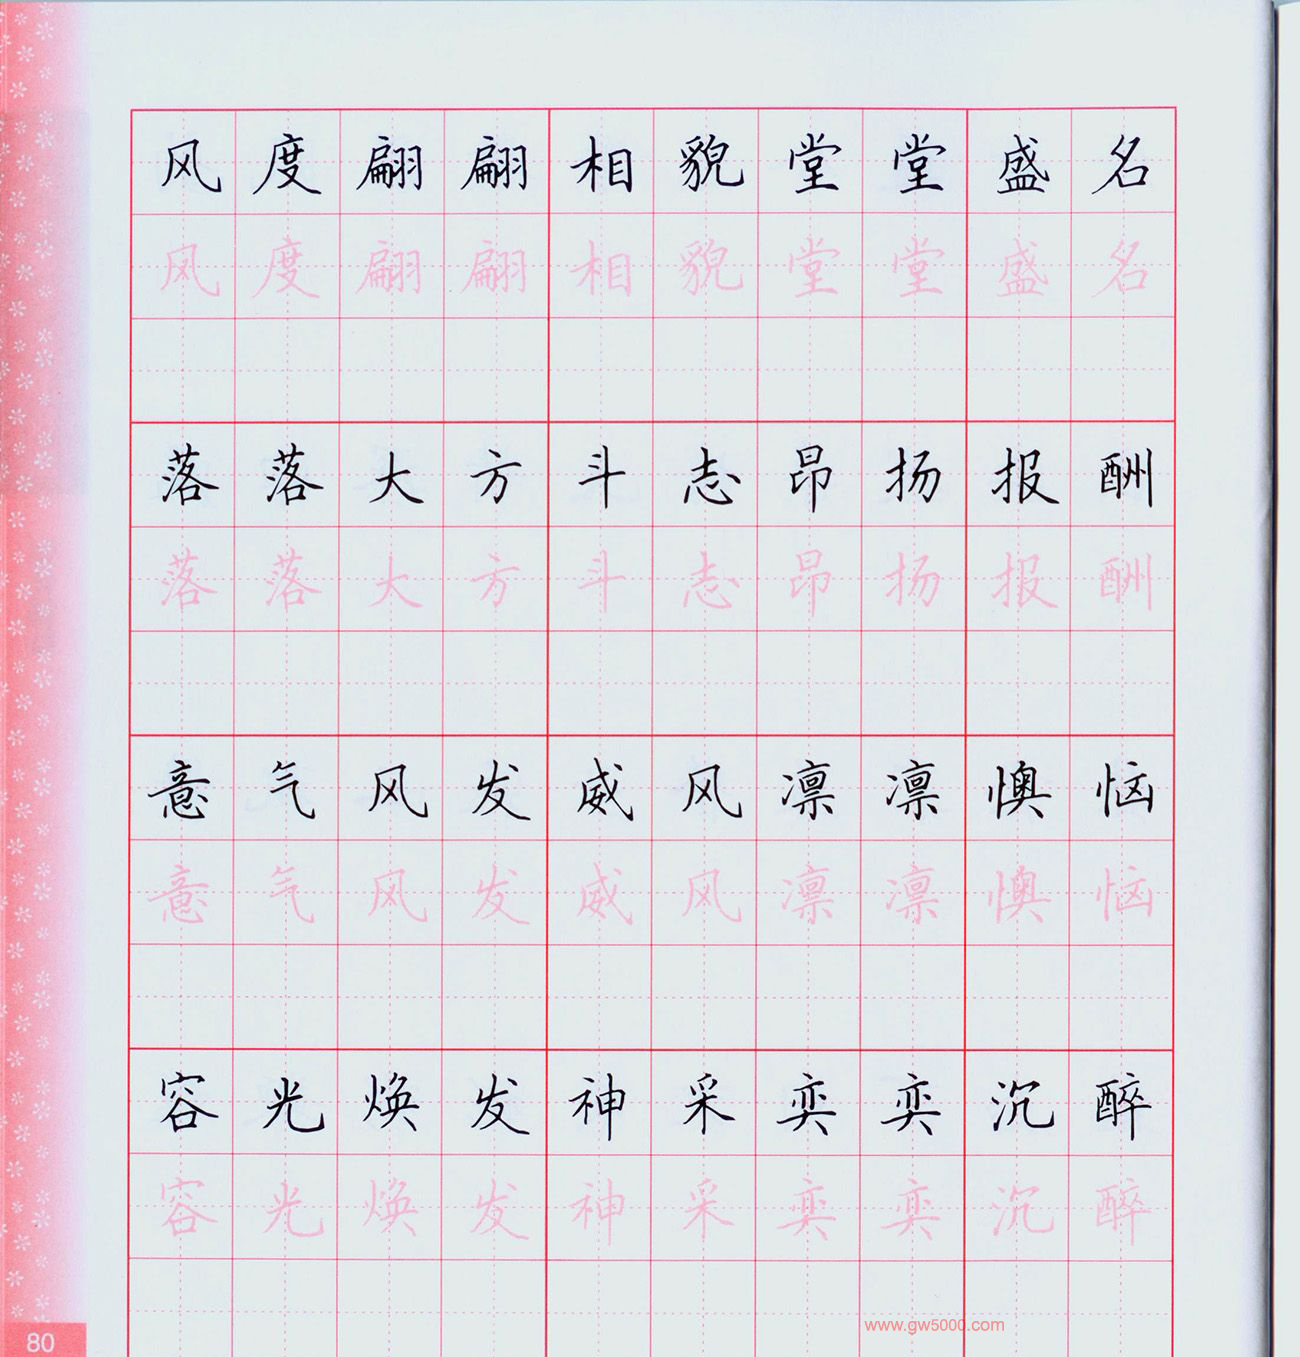 风度翩翩相貌堂堂盛名
风度翩翩相貌堂堂盛名
落落大方斗志昂扬报酬
落落大方斗志昂扬报酬
意气风发威风凛凛懊恼
意气风发威风凛凛懊恼
容光焕发神采奕奕沉醉
容光焕发神采奕奕沉醉
www.gw5000.com
80